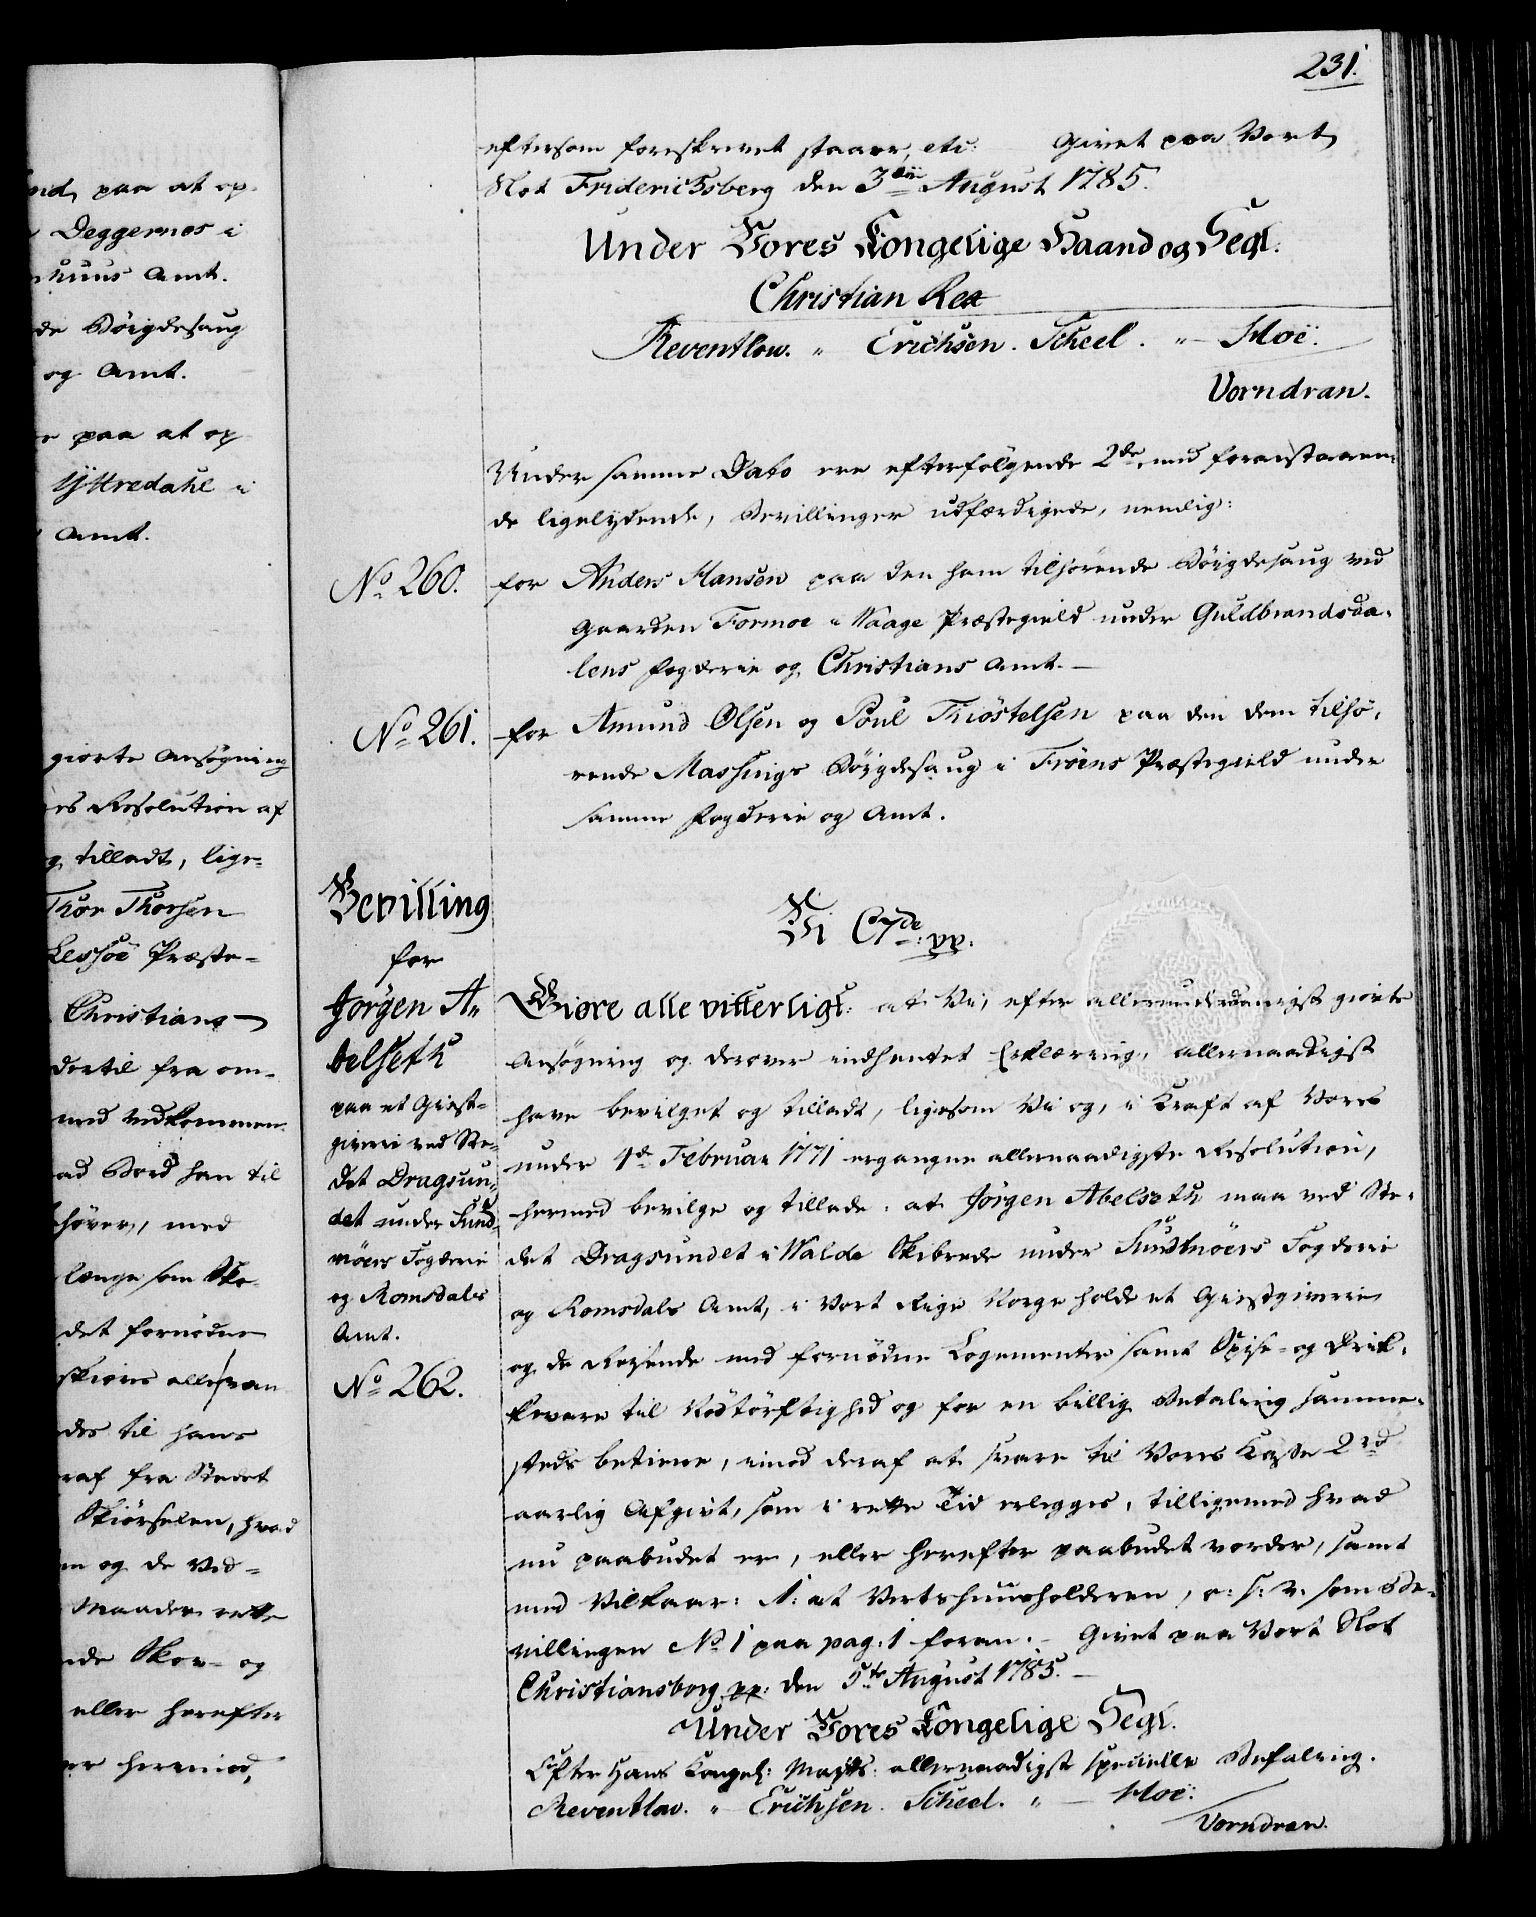 231.
eftersom foreskrevet staaer, etc: Givet paa Vort
Slot Friderichsberg den 3die August 1785.
Under Vores Kongelige Haand og Segl.
Christian Rex
Reventlow. " Erichsen. Scheel. " Hoë.
Vorndran.
Under samme Dato ere efterfølgende 2de, med foranstaaen-
de ligelydende, Bevillinger udfærdigede, nemlig:
No 260. for Anders Hansen paa den ham tilhørende Bøigdesaug ved
Gaarden Formoe i Waage Præstegield under Guldbrandsda-
lens Fogderie og Christians Amt.
No 261. for Amund Olsen og Poul Thiøstelsen paa den dem tilhø-
rende Massings Bøigdesaug i Frøens Præstegield under
samme Fogderie og Amt.
Bevilling
for
Jørgen A-
belseth
paa et Giest-
giverie ved Ste-
det Dragsun-
det under Sund-
møers Fogderie
og Romsdals
Amt.
No 262.
Vi C7de: pp:
Giøre alle vitterligt: at Vi, efter allerunderdanigst giorte
Ansøgning og derover indhentet Erklæring, allernaadigst
have bevilget og tilladt, ligesom Vi og, i Kraft af Vores
under 1de Februar 1771 ergangne allernaadigste Resolution,
hermed bevilge og tillade: at Jørgen Abelseth maa ved Ste-
det Dragsundet i Walde Skibrede under Sundmøers Fogderie
og Romsdals Amt, i Vort Rige Norge holde et Giestgiverie
og de Reisende med fornødne Logementer samt Spise- og Drik-
kevare til Nødtørftighed og for en billig Betaling samme-
steds betiene, imod deraf at svare til Vores Kasse 2 rd
aarlig Afgivt, som i rette Tid erlegges, tilligemed hvad
nu paabudet er, eller herefter paabudet vorder, samt
med Vilkaar: 1: at Vertshuusholderen, o: s: v: som Be-
villingen No 1 paa pag: 1 foran. Givet paa Vort Slot
Christiansborg pp: den 5te August 1785.
Under Vores Kongelige Segl.
Efter Hans Kongel: Mayts: allernaadigst specielle Befaling.
Reventlow. " Erichsen. Scheel. " Hoë.
Vorndran.
paa at op-
Deggernes i
huus Amt.
de Bøigdesaug
og Amt.
paa at op-
Yttredahl i
Amt.
giorte Ansøgning
Resolution af
tilladt, lige-
Thor Thorsen
Lessøe Præste-
Christians
dertil fra om-
med vedkommen-
ad Bord han til
høver, med
længe som Sko-
det fornødne
des til hans
raf fra Stedet
Skiørselen, hvad
og de Ved-
Maader rette
nde Skov- og
eller herefter
er herimod,